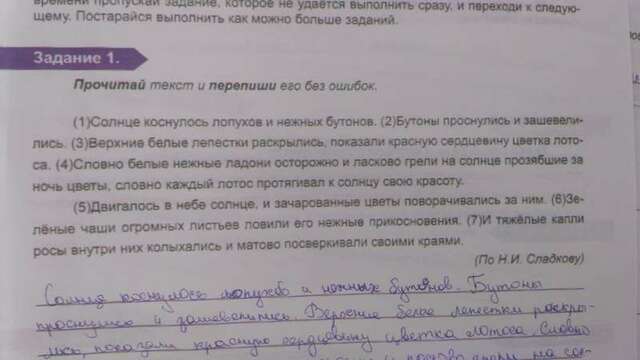 времени пропускай задание, которое не удаётся выполнить сразу, и переходи к следую-
щему. Постарайся выполнить как можно больше заданий.
Задание 1.
Прочитай текст и перепиши его без ошибок.
(1)Солнце коснулось лопухов и нежных бутонов. (2)Бутоны проснулись и зашевели-
лись. (3)Верхние белые лепестки раскрылись, показали красную сердцевину цветка лото-
са. (4)Словно белые нежные ладони осторожно и ласково грели на солнце прозябшие за
ночь цветы, словно каждый лотос протягивал к солнцу свою красоту.
(5)Двигалось в небе солнце, и зачарованные цветы поворачивались за ним. (6)Зе-
лёные чаши огромных листьев ловили его нежные прикосновения. (7)И тяжёлые капли
росы внутри них колыхались и матово посверкивали своими краями.
(По Н.И. Сладкову)
Солнце коснулось лопухов и нежных бутонов. Бутоны
проснулись и зашевелились. Верхние белые лепестки раскры-
лись, показали красную сердцевину цветка лотоса. Словно